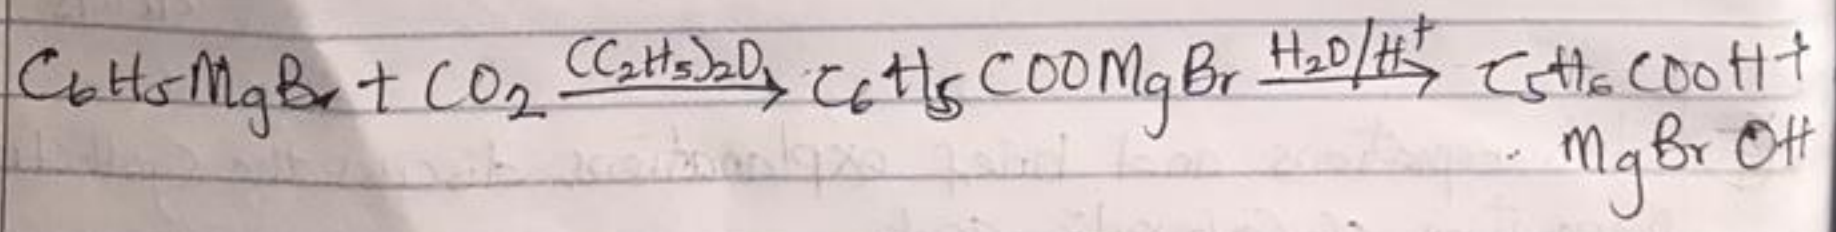 C₆H₅MgBr + CO₂ \xrightarrow{(C₂H₅)₂O} C₆H₅COOMgBr \xrightarrow{H₂O/H⁺} C₅H₆COOH +
MgBrOH